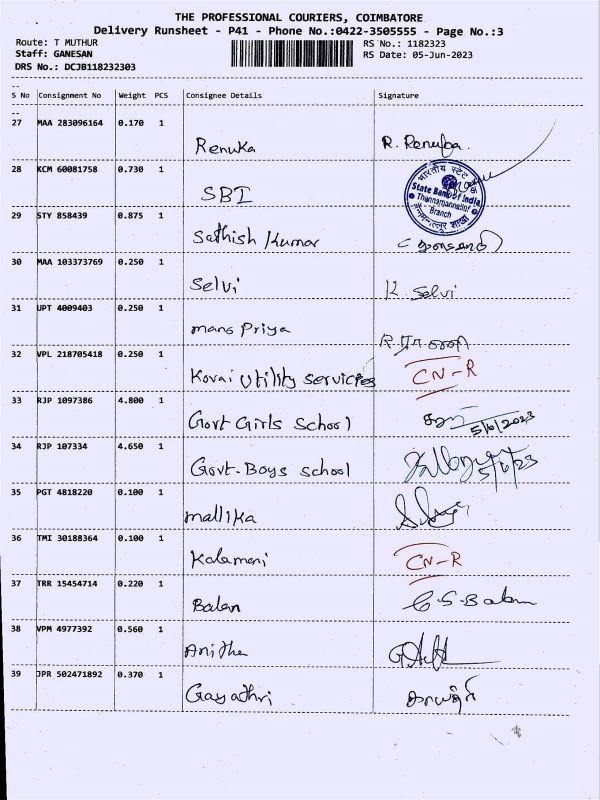 THE PROFESSIONAL COURIERS, COIMBATORE
Delivery Runsheet - P41 - Phone No.:0422-3505555 - Page No.:3
Route: T MUTHUR RS No.: 1182323
Staff: GANESAN RS Date: 05-Jun-2023
DRS No.: DCJB118232303
--
S No Consignment No Weight PCS Consignee Details Signature
--
27 MAA 283096164 0.170 1
Renuka R. Renuka.
28 KCM 60081758 0.730 1
SBI
भारतीय स्टेट बैंक
State Bank of India
Branch
शाखा
29 STY 858439 0.875 1
Sathish Kumar
30 MAA 103373769 0.250 1
Selvi K. Selvi
31 UPT 4009403 0.250 1
mano Priya
32 VPL 218705418 0.250 1
Kovai Utility Services CN-R
33 RJP 1097386 4.800 1
Govt Girls School 5/6/2023
34 RJP 107334 4.650 1
Govt-Boys School 5/6/23
35 PGT 4818220 0.100 1
mallika
36 TMI 30188364 0.100 1
Kalamani CN-R
37 TRR 15454714 0.220 1
Balan G-S-Balan
38 VPM 4977392 0.560 1
Anitha
39 JPR 502471892 0.370 1
Gayathri காயத்ரி